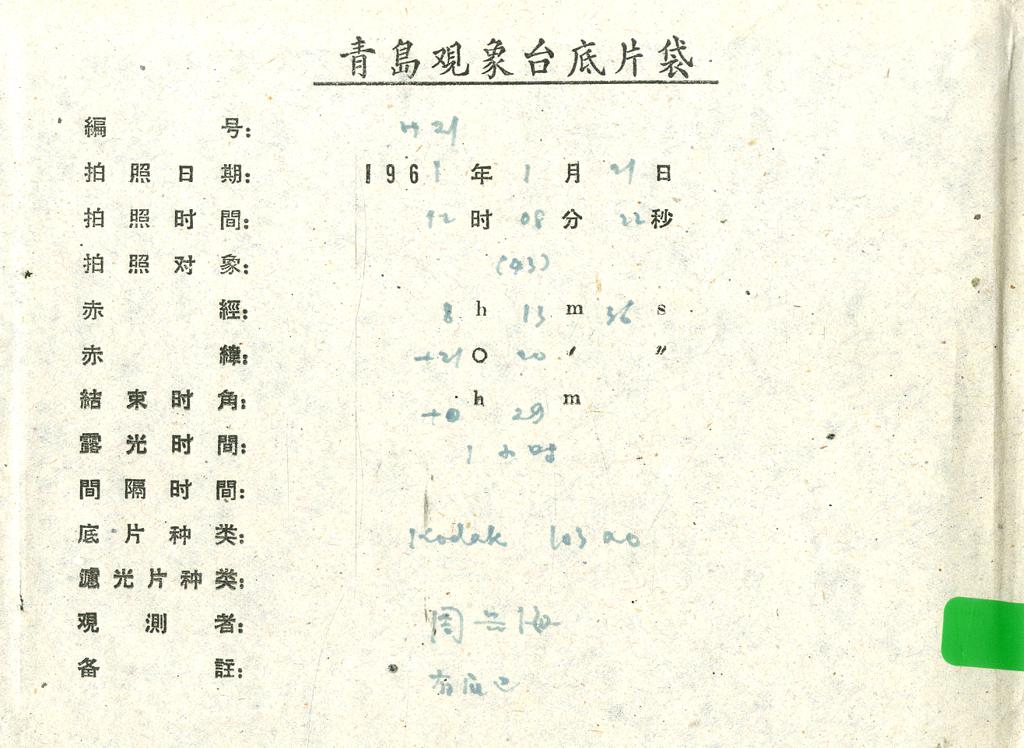 青島观象台底片袋
編号： 21
拍照日期： 1961年1月21日
拍照时間： 12时08分22秒
拍照对象： (43)
赤經： 8h 13m 36s
赤緯： +21° 20′ ″
結束时角： +0h 29m
露光时間： 1小时
間隔时間：
底片种类： Kodak 103 aO
濾光片种类：
观測者： 周云海
备註： 有底